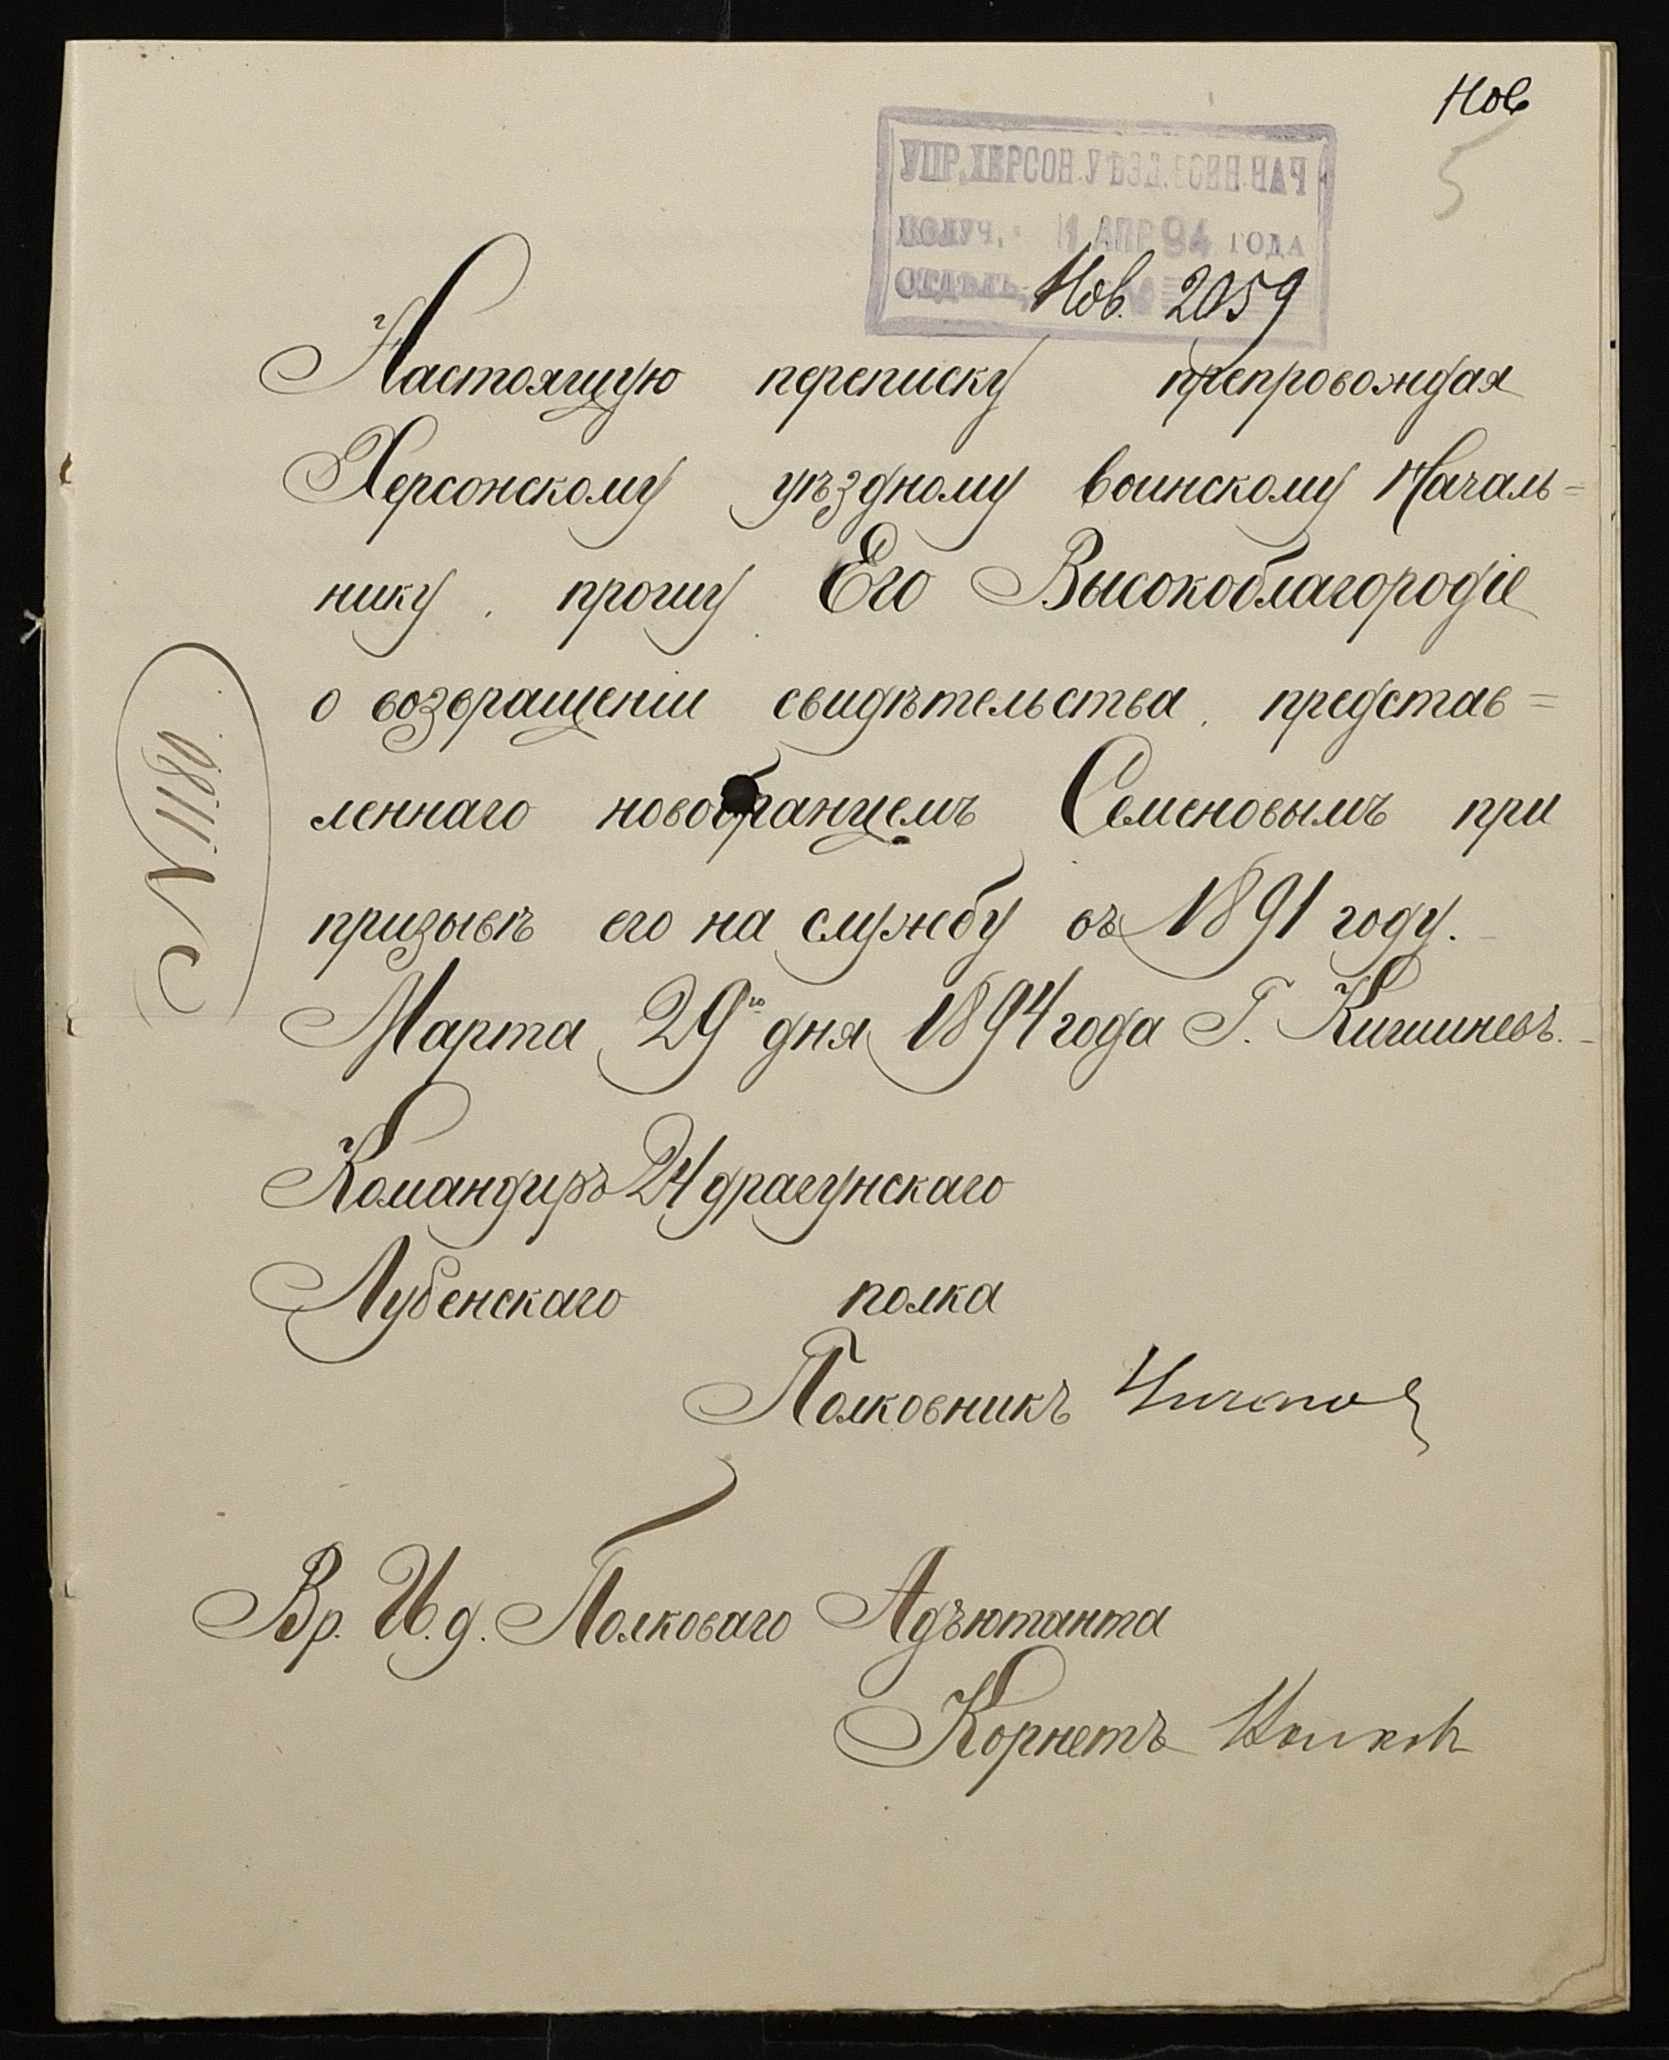 Нов
5
УПР. ХЕРСОН. УѢЗД. ВОИН. НАЧ
ПОЛУЧ. 11 АПР 94 ГОДА
ОТДѢЛЪ Нов. 2059
Настоящую переписку препровождая
Херсонскому уѣздному воинскому Началь=
нику, прошу Его Высокоблагородіе
о возвращеніи свидѣтельства, представ=
леннаго новобранцемъ Семеновымъ при
призывѣ его на службу въ 1891 году.
Марта 29го дня 1894 года Г. Кишиневъ.
№ 1180
Командиръ 24 драгунскаго
Лубенскаго полка
Полковникъ
Вр. И. д. Полковаго Адъютанта
Корнетъ